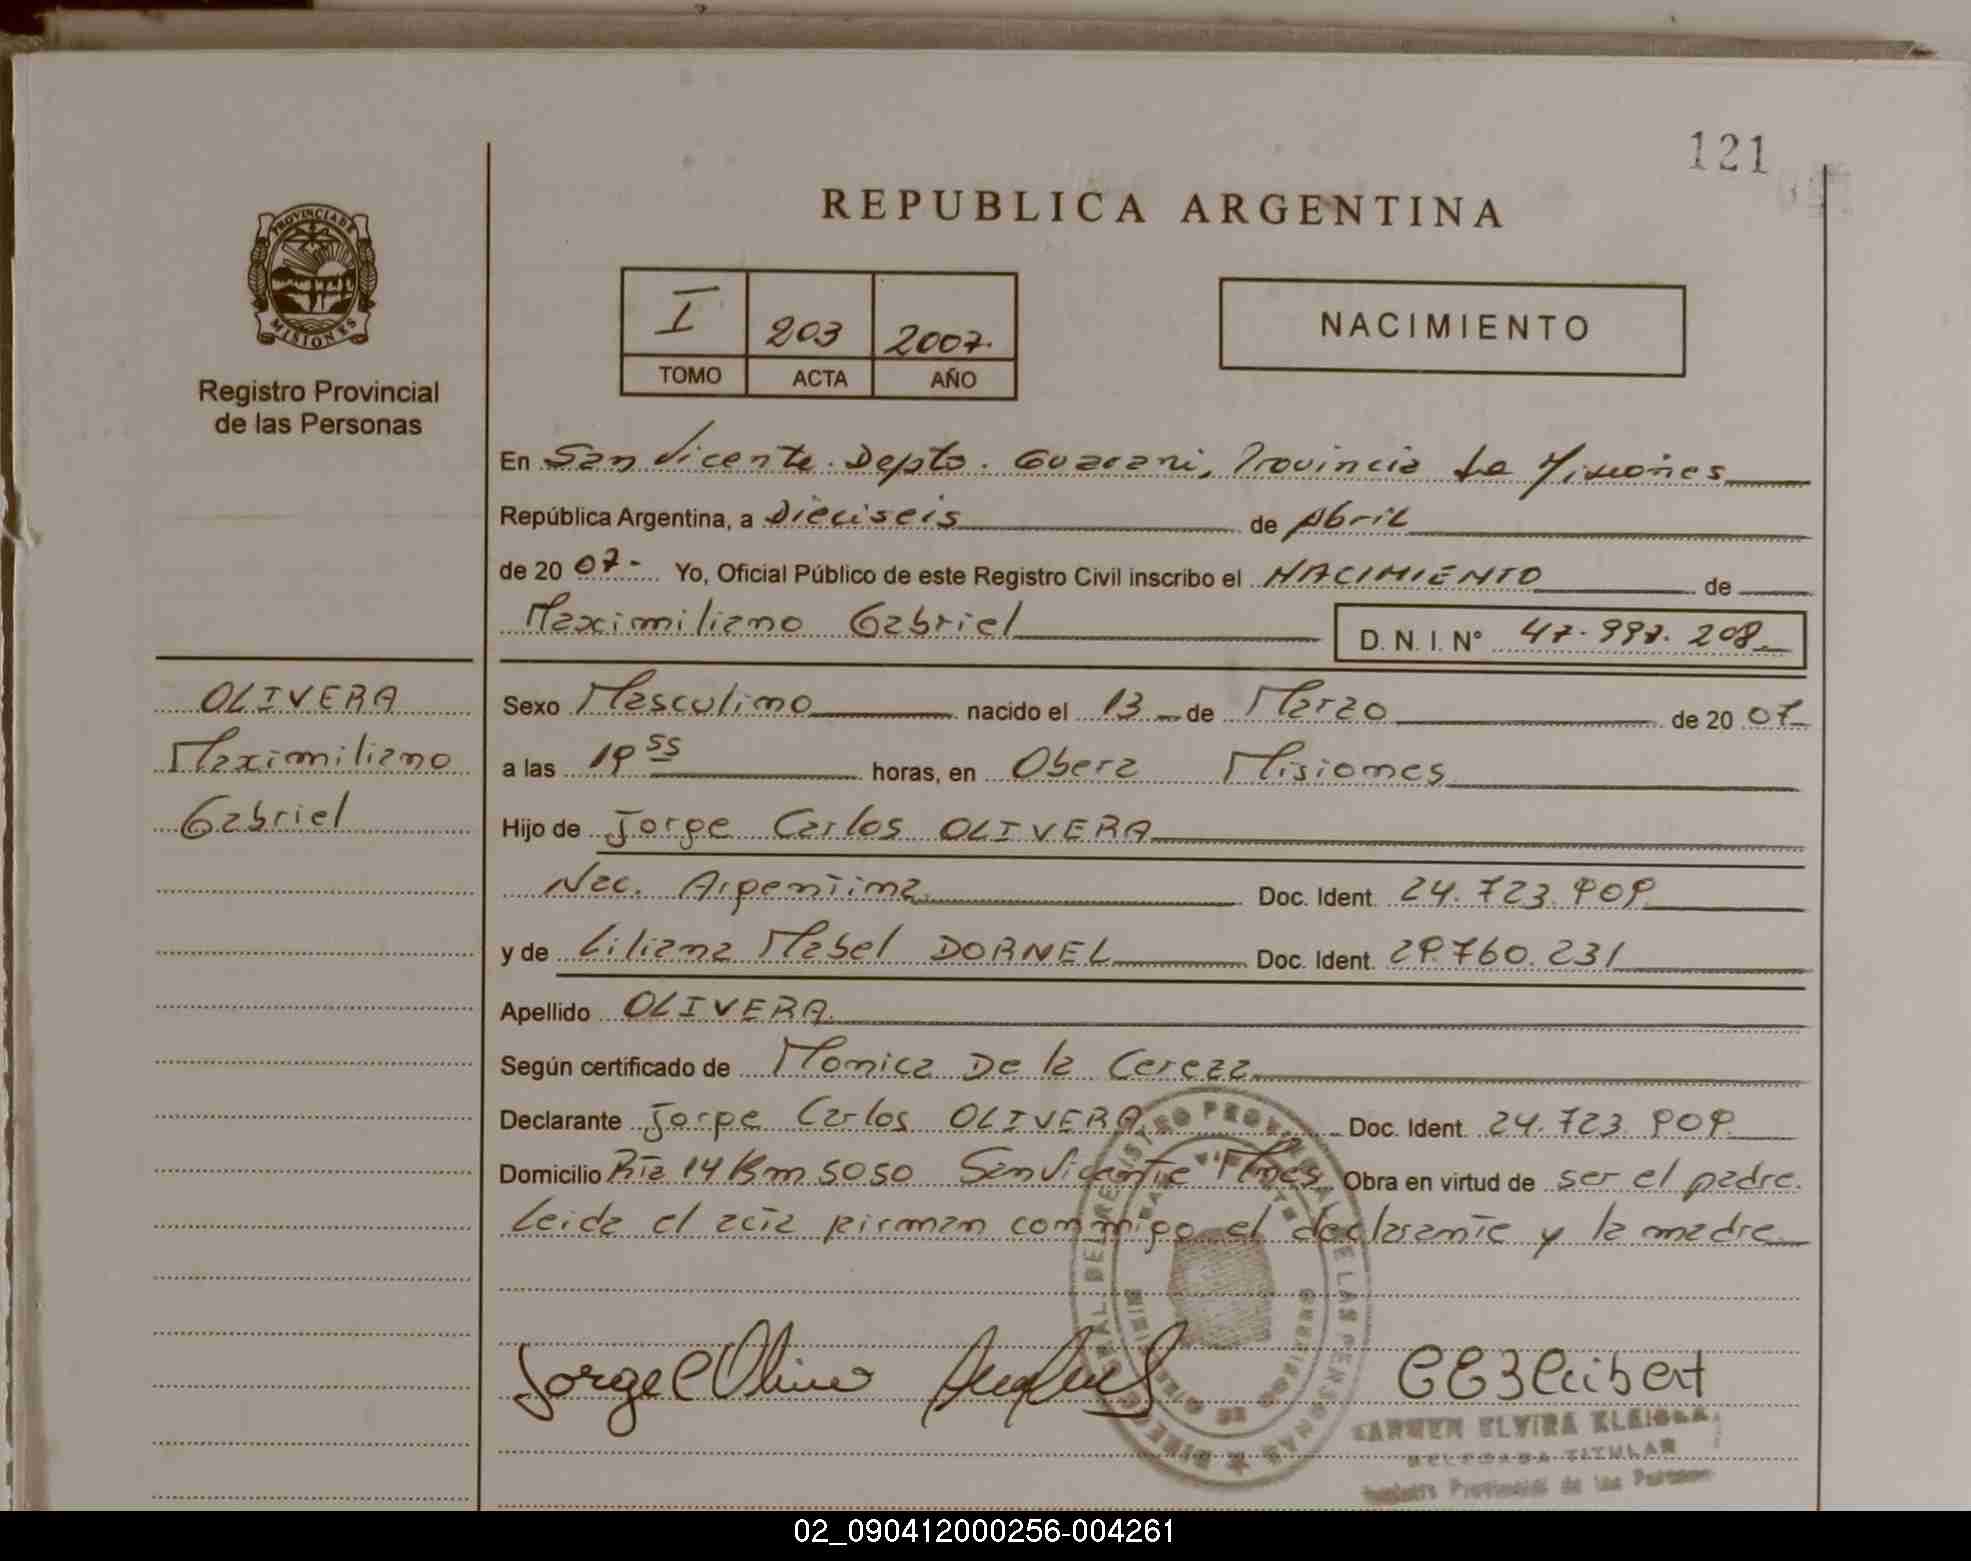 121
PROVINCIA DE
MISIONES
Registro Provincial
de las Personas
REPUBLICA ARGENTINA
I 203 2007.
TOMO ACTA AÑO
NACIMIENTO
En San Vicente. Depto. Guarani, Provincia de Misiones
República Argentina, a Dieciseis de Abril
de 2007- Yo, Oficial Público de este Registro Civil inscribo el NACIMIENTO de
Maximiliano Gabriel D. N. I. N° 47.997.208
OLIVERA
Maximiliano
Gabriel
Sexo Masculino nacido el 13 de Marzo de 2007
a las 19 55 horas, en Obera Misiones
Hijo de Jorge Carlos OLIVERA
Nac. Argentina Doc. Ident. 24.723.909
y de Liliana Mabel DORNEL Doc. Ident. 29.760.231
Apellido OLIVERA
Según certificado de Monica De la Cereza
Declarante Jorge Carlos OLIVERA Doc. Ident. 24.723.909
Domicilio Rta 14 Km 5050 San Vicente Mnes Obra en virtud de ser el padre.
Leida el acta firman conmigo el declarante y la madre
Jorge C Olivera
DIRECC GENERAL DEL REGISTRO PROVINCIAL DE LAS PERSONAS
SAN VICENTE
CARMEN ELVIRA
DELEGADA TITULAR
Registro Provincial de las Personas
02_090412000256-004261